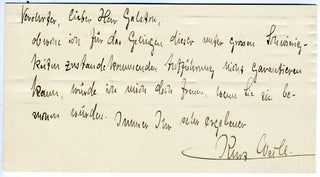 Verehrter, lieber Herr Galston,
obwohl ich für das Gelingen dieser unter grossen Schwierig-
keiten zustandekommenden Aufführung nicht garantieren
kann, würde ich mich doch freuen, wenn Sie sie be-
suchen würden. Immer Ihr sehr ergebener
Kurt Weill.